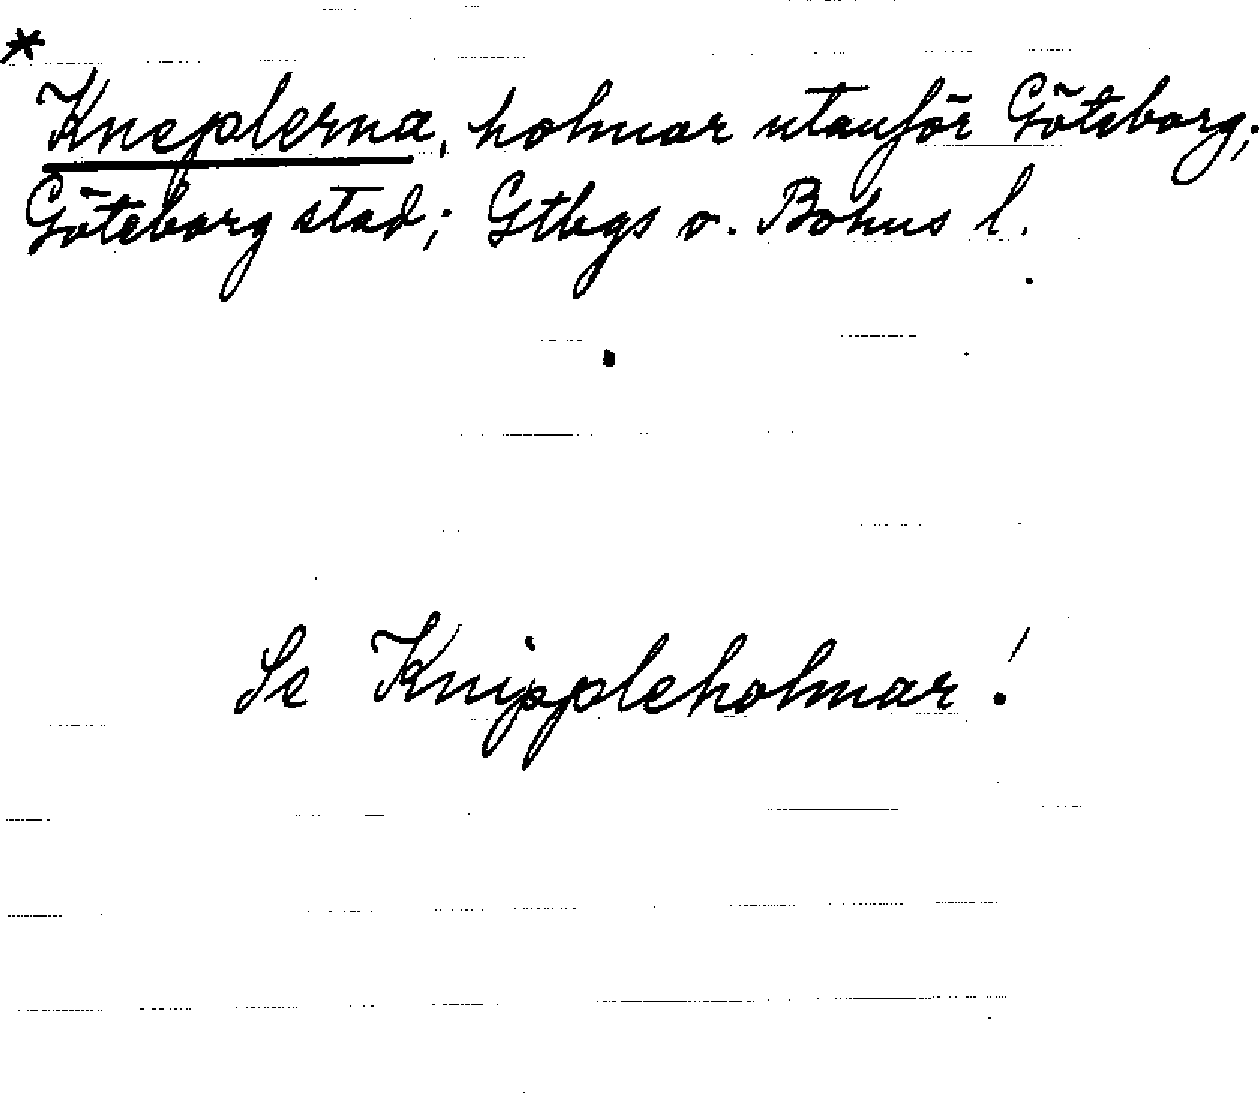 *
Kneplerna, holmar utanför Göteborg;
Göteborg stad; Gtbgs o. Bohus l.
Se Knippleholmar!